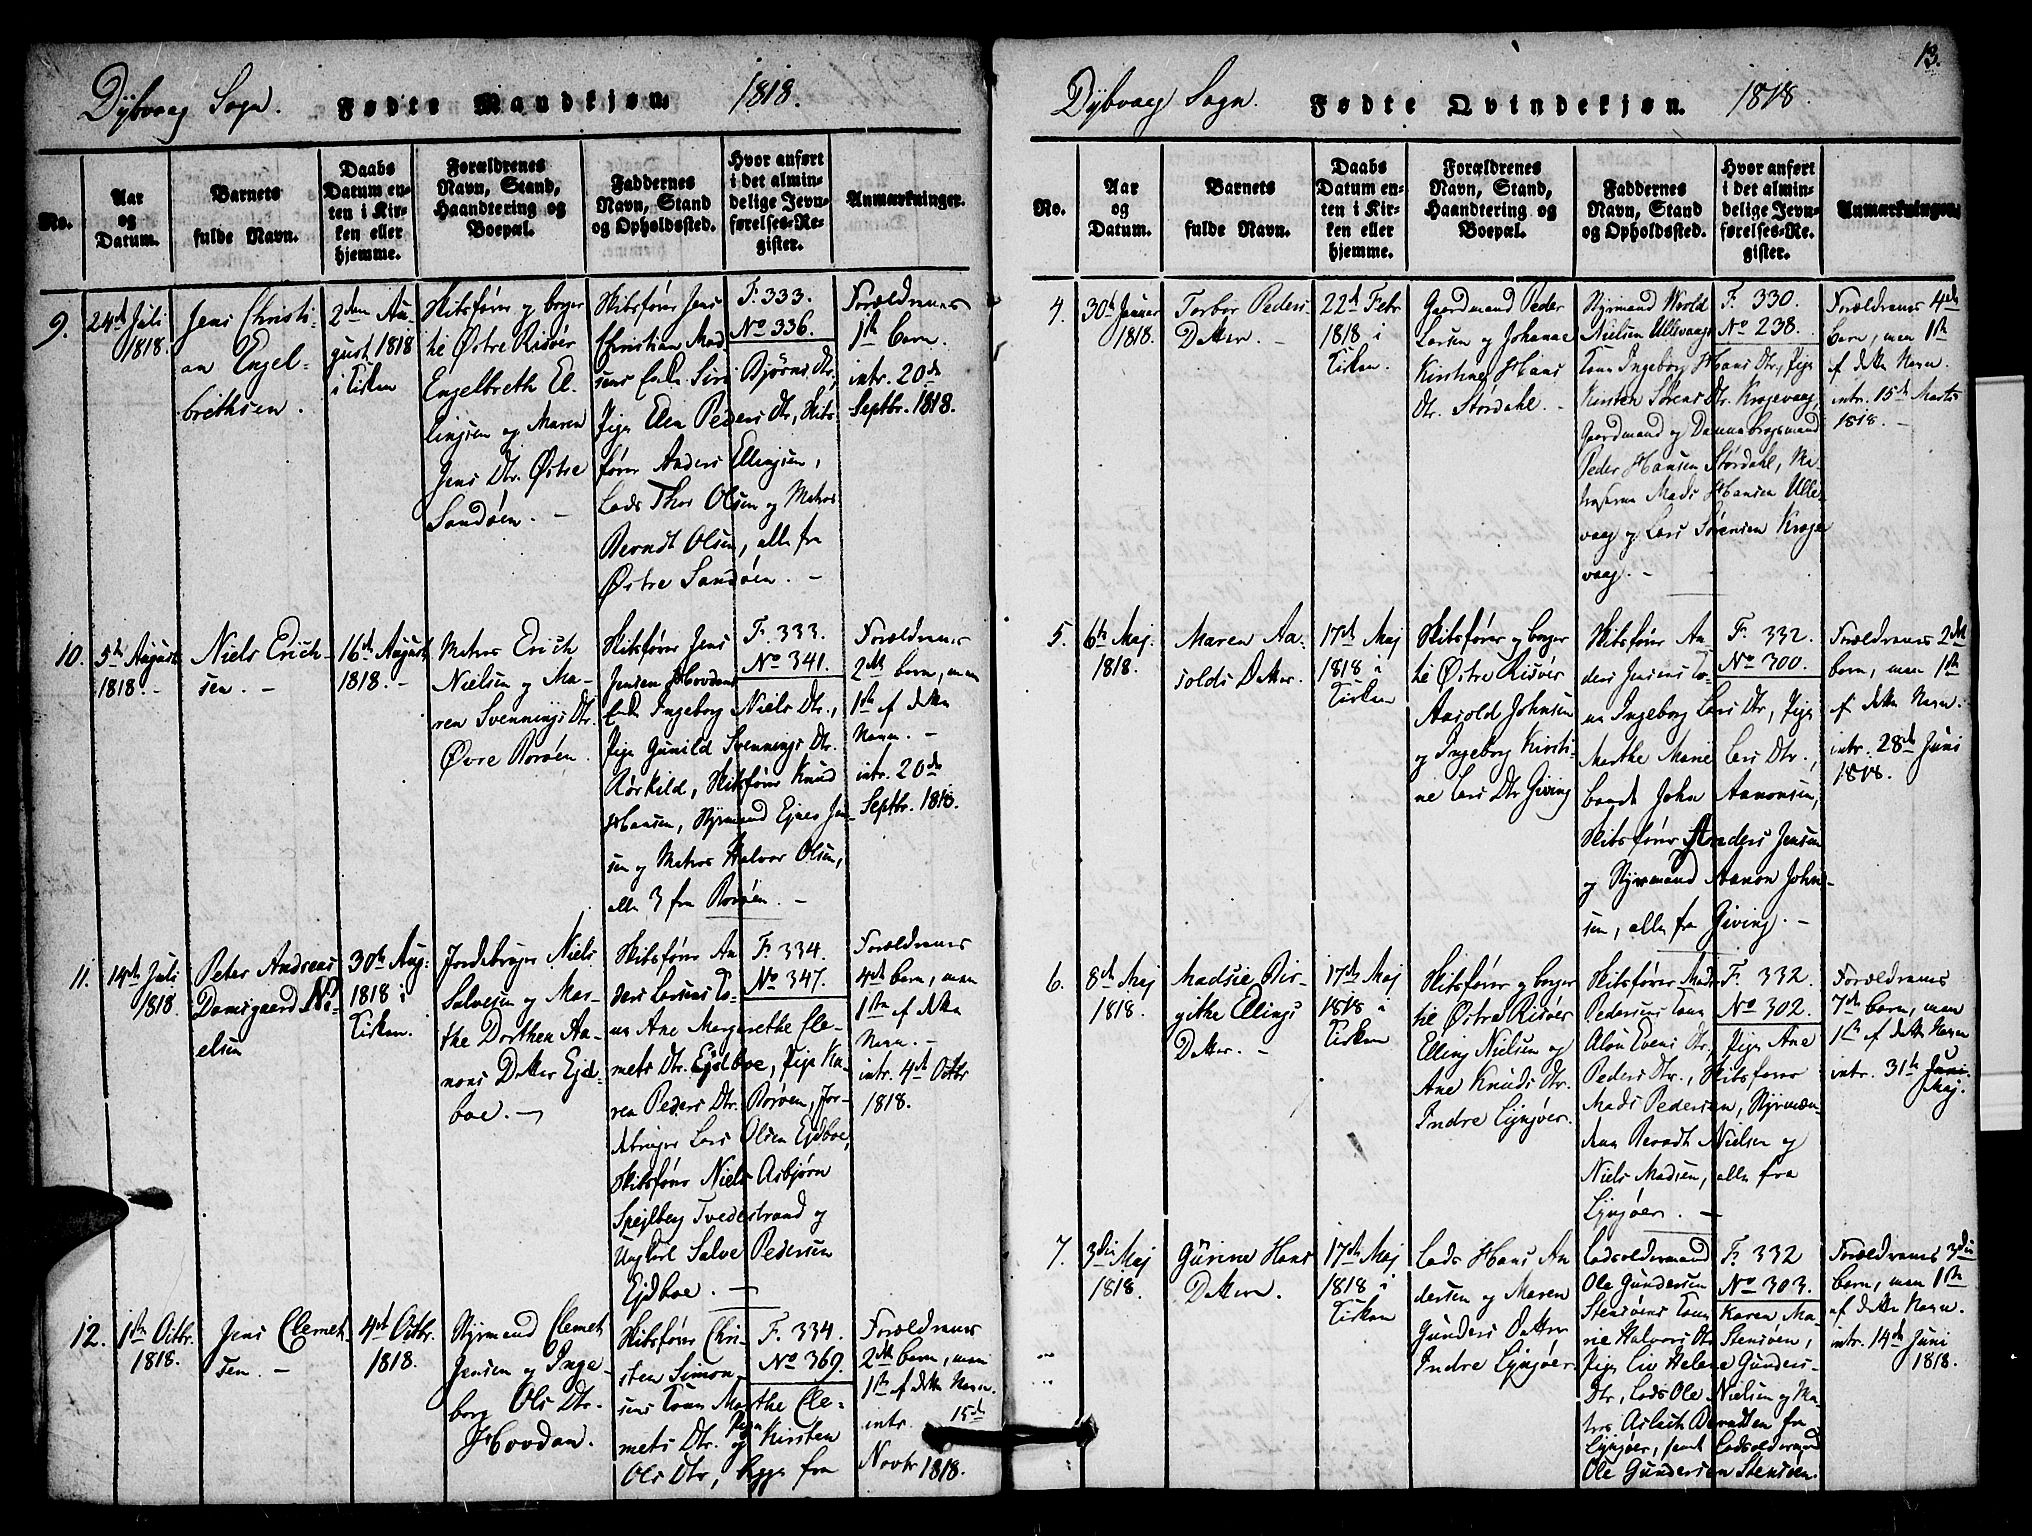 Dybvaag Sogn. Fødte Mandkjøn. 1818.
No.
Aar
og
Datum.
Barnets
fulde Navn.
Daabs
Datum en-
ten i Kir-
ken eller
hjemme.
Forældrenes
Navn, Stand,
Haandtering og
Boepæl.
Faddernes
Navn, Stand
og Opholdssted.
Hvor anført
i det almin-
delige Jevn-
førelses-Re-
gister.
Anmærkninger.
9.
24de Juli
1818.
Jens Christi-
an Engel-
brethsen.
2den Au-
gust 1818
i Kirken
Skibsfører og borger
til Østre Risöer
Engelbreth El-
lingsen og Maren
Jens Dtr. Østre
Sandøen. -
Skibsfører Jens
Christian Mad-
sens Enke Siri Bjørns Dtr,
Pige Elen Peders Dtr, Skibs-
fører Anders Ellingsen,
Lods Thor Olsen og Matros
Berndt Olsen, alle fra
Østre Sandøen. -
F. 333.
No 336.
Forældrenes
1ste barn.
intr. 20de
Septbr. 1818.
10.
5te August
1818. -
Niels Erich-
sen. -
16de August
1818. -
Matros Erich
Nielsen og Ma-
ren Svennings Dtr.
Øvre Borøen.
Skibsfører Jens
Jensen Hovdens
Enke Ingeborg Niels Dtr,
Pige Gunild Svennings Dtr.
Rørkild, Skibsfører Knud
Hansen, Styrmand Ejnes Jen-
sen og Matros Halvor Olsen,
alle 3 fra Borøen. -
F. 333.
No 341.
Forældrenes
2det barn, men
1ste af dette
Navn. -
intr. 20de
Septbr. 1818.
11.
14de Juli
1818.
Peter Andreas
Damsgaard Ni-
elsen
30te Aug:
1818 i
Kirken.
Jordebruger Niels
Salvesen og Mar-
the Dorthea Aa-
nons Datter Ejd-
boe. -
Skibsfører An-
ders Larsens Ko-
ne Ane Margarethe Cle-
mets Dtr. Ejdboe, Pige Ka-
ren Peders Dtr. Borøen, Jor-
debruger Lars Olsen Ejdboe,
Skibsfører Niels Asbjørn
Spejlberg Tvedestrand og
Ungkarl Salve Pedersen
Ejdboe. -
F. 334.
No 347.
Forældrenes
4de barn, men
1ste af dette
Navn. -
intr. 4de Octbr
1818.
12.
1ste Octbr.
1818.
Jens Clemet-
sen. -
4de Octbr.
1818.
Styrmand Clemet
Jensen og Inge-
borg Ols Dtr.
Hovdan.
Skibsfører Chri-
sten Simon-
sens Kone Marthe Cle-
mets Dtr. og Pige Kirsten
Ols Dtr, begge fra
F. 334.
No 369.
Forældrenes
2det barn, men
1ste af dette Navn.
intr. 15de
Novbr 1818.
13.
Dybvaag Sogn. Fødte Qvindekjøn. 1818.
No.
Aar
og
Datum.
Barnets
fulde Navn.
Daabs
Datum en-
ten i Kir-
ken eller
hjemme.
Forældrenes
Navn, Stand,
Haandtering og
Boepæl.
Faddernes
Navn, Stand
og Opholdssted.
Hvor anført
i det almin-
delige Jevn-
førelses-Re-
gister.
Anmærkninger.
4.
30te Januar
1818.
Torbor Peders
Datter. -
22de Febr
1818 i
Kirken.
Gaardmand Peder
Larsen og Johanne
Kirstine Hans
Dtr. Stordahl. -
Styrmand Wrold
Nielsen Ullevaags
Kone Ingeborg Hans Dtr, Pige
Kirsten Sørens Dtr. Krogevaag,
Gaardmand og Dannebrogsmand
Peder Hansen Stordahl, Ma-
troserne Mads Hansen Ulle-
vaag og Lars Sørensen Kroge-
vaag. -
F. 330.
No 238.
Forældrenes 4de
barn, men 1ste
af dette Navn.
intr. 15de Marts
1818. -
5.
6te Maj
1818.
Maren Aa-
solds Datter.
17de Maj
1818 i
Kirken
Skibsfører og borger
til Østre Risöer
Aasold Johnsen
og Ingeborg Kirsti-
ne Lars Dtr Giving
Skibsfører An-
ders Jensens Ko-
ne Ingeborg Lars Dtr, Pige
Marthe Marie Lars Dtr.,
bonde John Aanonsen,
Skibsfører Anders Jensen
og Styrmand Aanon John-
sen, alle fra Giving. -
F. 332.
No 300.
Forældrenes 2det
barn, men 1ste
af dette Navn.
intr. 28de Juni
1818.
6.
8de Maj
1818.
Madsie Bir-
githe Ellings
Datter. -
17de Maj
1818 i
Kirken
Skibsfører og borger
til Østre Risöer
Elling Nielsen og
Ane Knuds Dtr.
Indre Lyngøer.
Skibsfører Mads
Pedersens Kone
Alou Evens Dtr, Pige Ane
Peders Dtr., Skibsfører
Mads Pedersen, Styrmæn-
dene Berndt Nielsen og
Niels Madsen, alle fra
Lyngøer. -
F. 332.
No 302.
Forældrenes
7de barn, men
1ste af dette Navn
intr. 31te Juni.
Maj.
7.
3die Maj
1818.
Gurine Hans
Datter.
17de Maj
1818 i
Kirken
Lods Hans An-
dersen og Maren
Gunders Datter
Indre Lyngøer.
Lodsoldermand
Ole Gundersen
Stensøens Kone Karen Ma-
rie Halvors Dtr Stensøen,
Pige Liv Helene Gunders-
Dtr, Lods Ole Nielsen og Ma-
tros Aslach Berndtsen fra
Lyngøer, samt Lodsoldermand
Ole Gundersen Stensøen.
F. 332
No 303.
Forældrenes 3die
barn, men 1ste
af dette Navn.
intr. 14de Juni
1818.